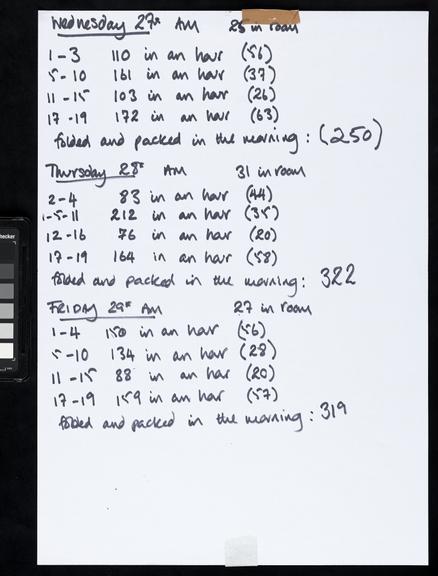 Wednesday 27th AM 25 in room
1-3 110 in an hour (56)
5-10 161 in an hour (37)
11-15 103 in an hour (26)
17-19 172 in an hour (63)
folded and packed in the morning: (250)
Thursday 28th AM 31 in room
2-4 83 in an hour (44)
1-5-11 212 in an hour (35)
12-16 76 in an hour (20)
17-19 164 in an hour (58)
folded and packed in the morning: 322
FRIDAY 29th AM 27 in room
1-4 150 in an hour (56)
5-10 134 in an hour (28)
11-15 88 in an hour (20)
17-19 159 in an hour (57)
folded and packed in the morning: 319